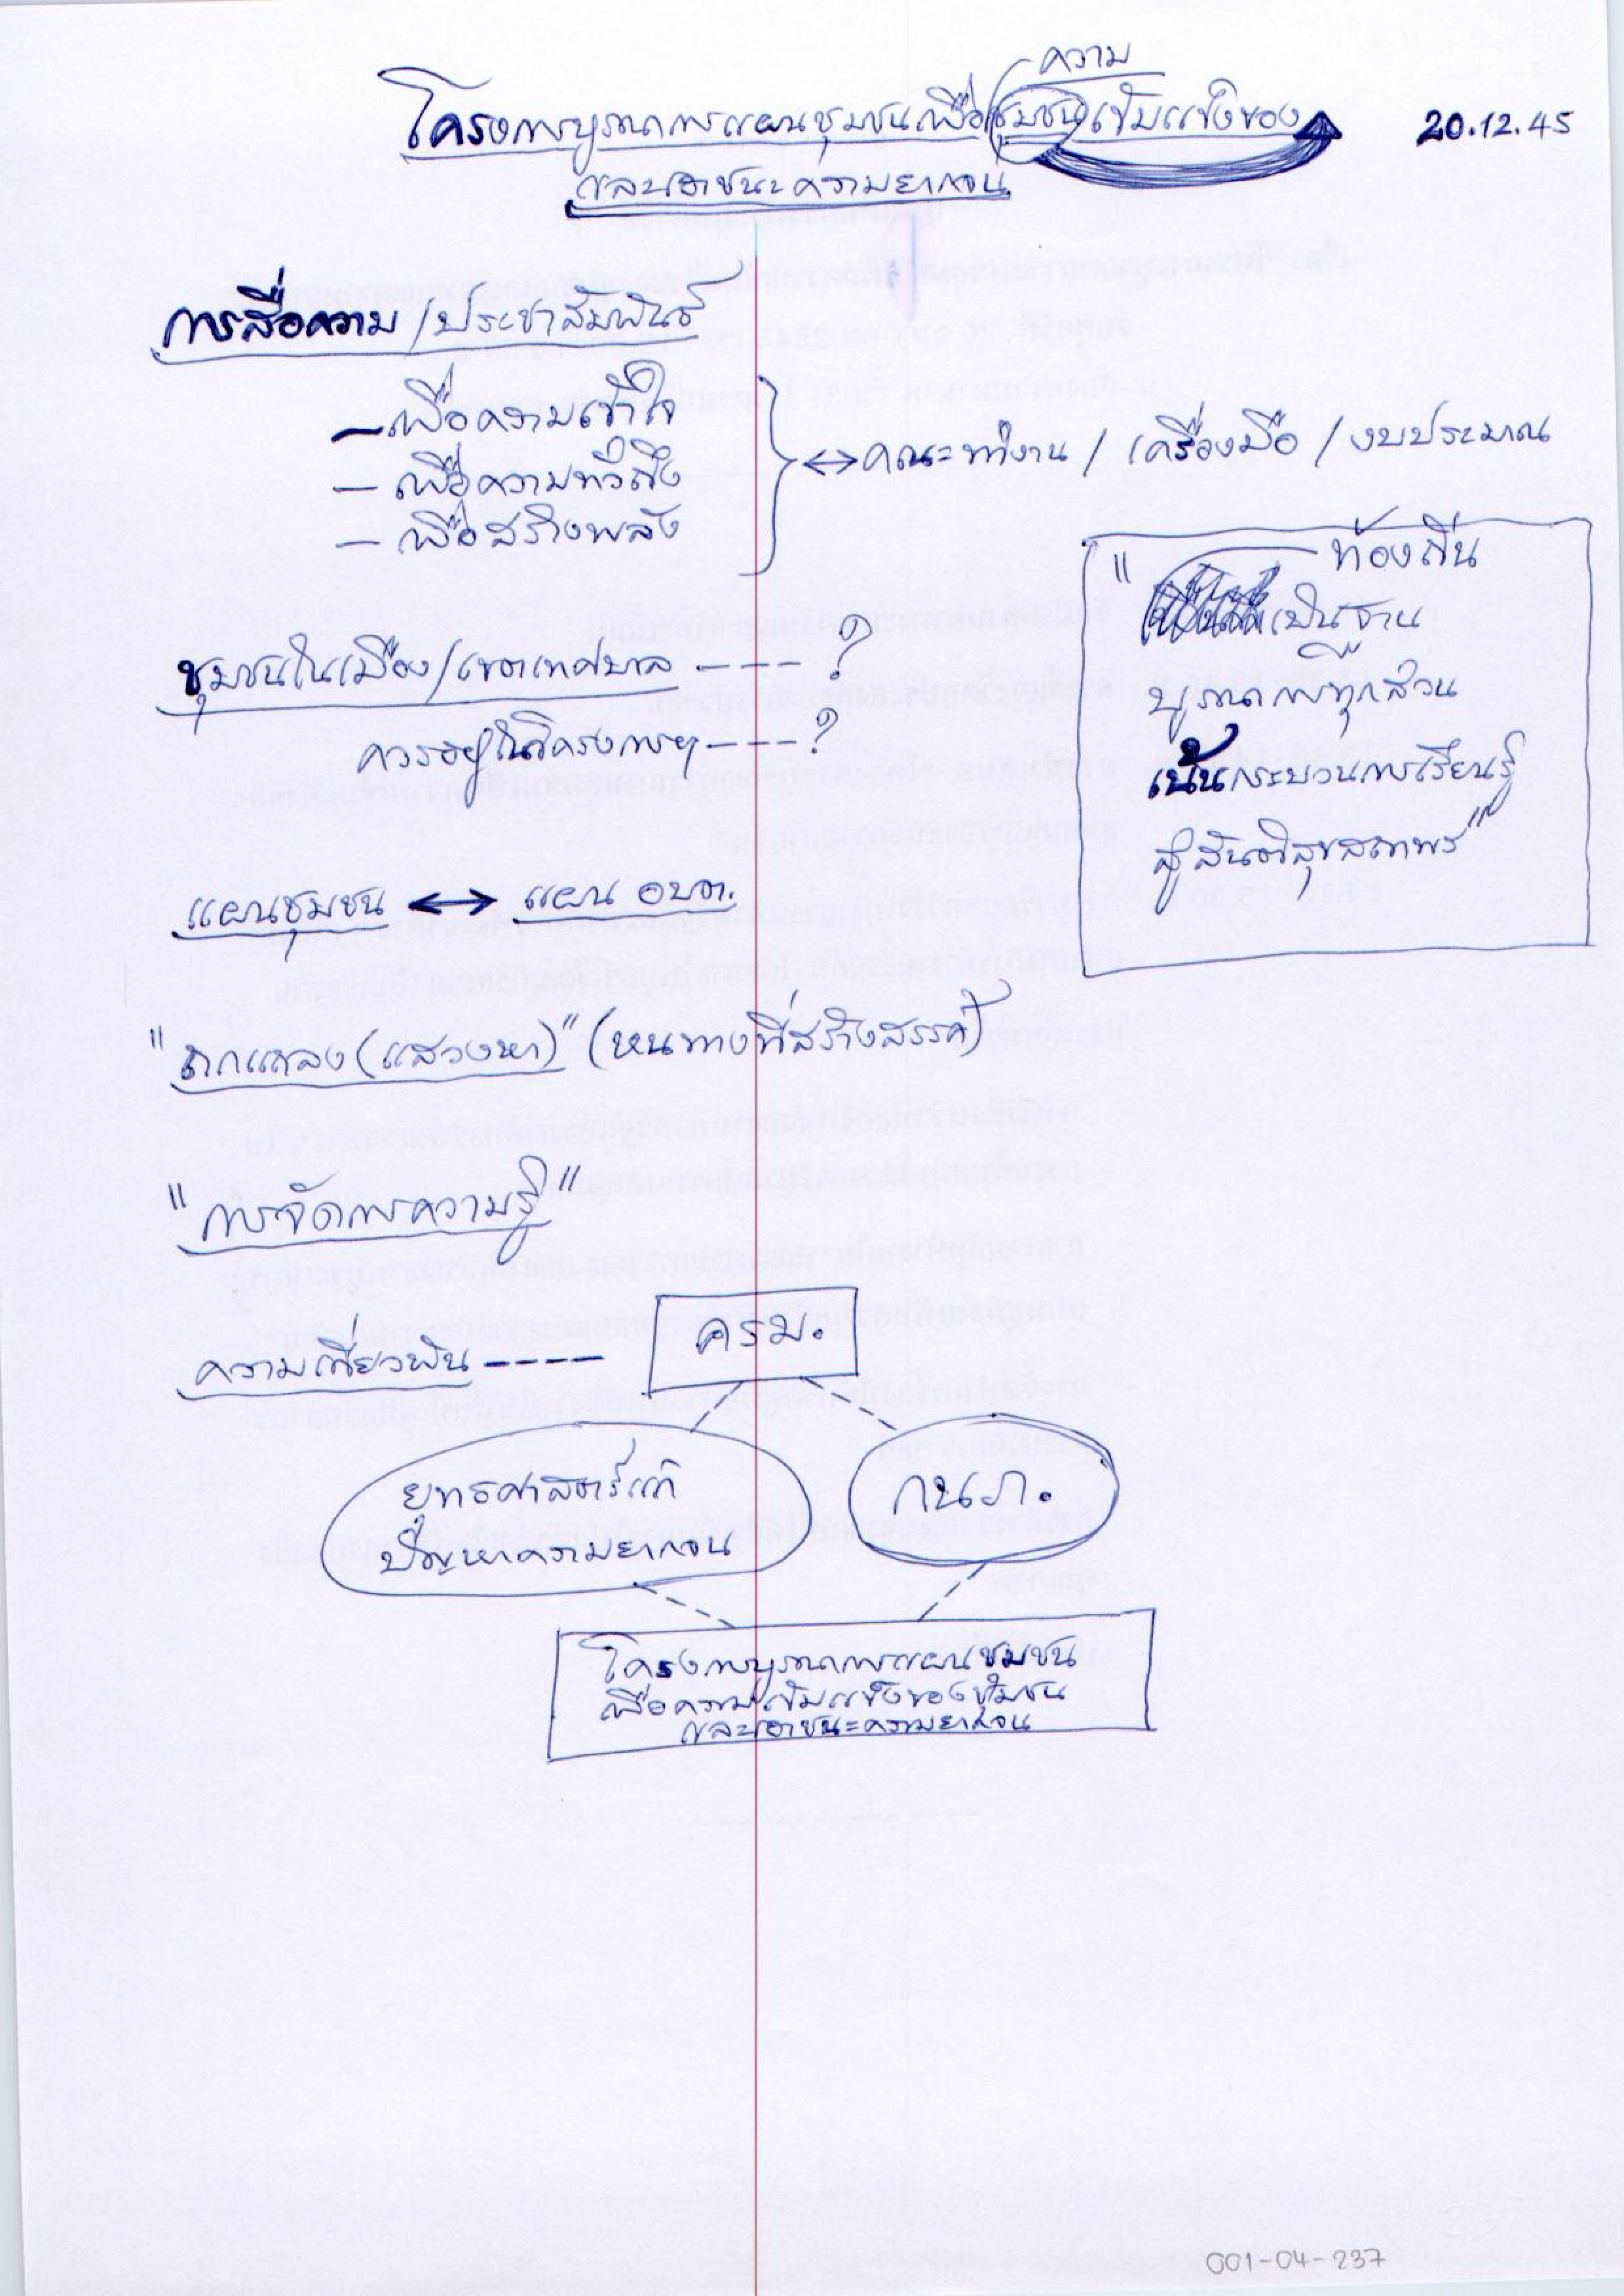 ความ
โครงการบูรณาการแผนชุมชนเพื่อชุมชนเข้มแข็งของ
20.12.45
และเอาชนะความยากจน
การสื่อความ/ประชาสัมพันธ์
– เพื่อความเข้าใจ
– เพื่อความทั่วถึง
– เพื่อสร้างพลัง
↔ คณะทำงาน / เครื่องมือ / งบประมาณ
"ท้องถิ่น
เป็นฐาน
บูรณาการทุกส่วน
เน้นกระบวนการเรียนรู้
สู่สันติสุขสถาพร"
ชุมชนในเมือง/เขตเทศบาล ----?
ควรอยู่ในโครงการฯ ----?
แผนชุมชน ↔ แผน อบต.
"ถกแถลง(แสวงหา)" (หนทางที่สร้างสรรค์)
"การจัดการความรู้"
ความเกี่ยวพัน ----
ครม.
ยุทธศาสตร์แก้
ปัญหาความยากจน
กนภ.
โครงการบูรณาการแผนชุมชน
เพื่อความเข้มแข็งของชุมชน
และเอาชนะความยากจน
001-04-237